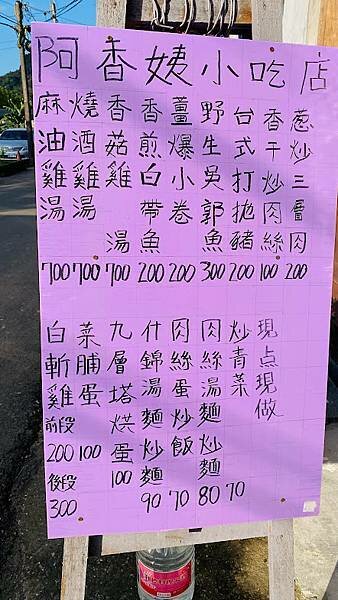 阿香姨小吃店
麻油雞湯 700
燒酒雞湯 700
香菇雞湯 700
香煎白帶魚 200
薑爆小卷 200
野生吳郭魚 300
台式打拋豬 200
香干炒肉絲 100
葱炒三層肉 200
白斬雞 前段 200 後段 300
菜脯蛋 100
九層塔烘蛋 100
什錦湯麵炒麵 90
肉絲蛋炒飯 70
肉絲湯麵炒麵 80
炒青菜 70
現点現做